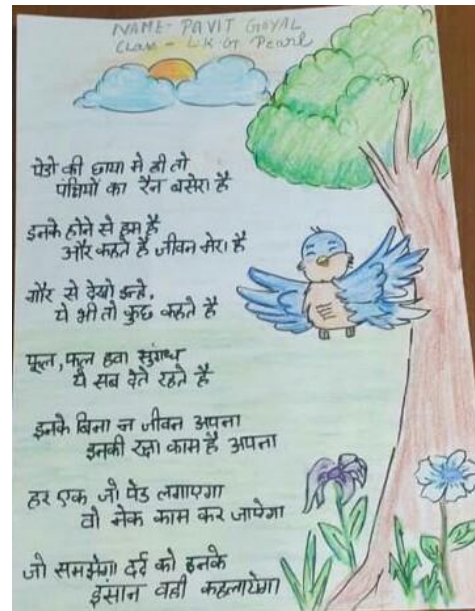 NAME- PAVIT GOYAL
Class - L.K.G Pearl
पेडो की छाया मे ही तो
पंछियों का रैन बसेरा है
इनके होने से हम है
और कहते है जीवन मेरा है
गौर से देखो इन्हे,
ये भी तो कुछ कहते है
फूल, फल हवा सुगंध
ये सब देते रहते है
इनके बिना न जीवन अपना
इनकी रक्षा काम है अपना
हर एक जो पेड लगाएगा
वो नेक काम कर जाऐगा
जो समझेगा दर्द को इनके
इंसान वही कहलायेगा